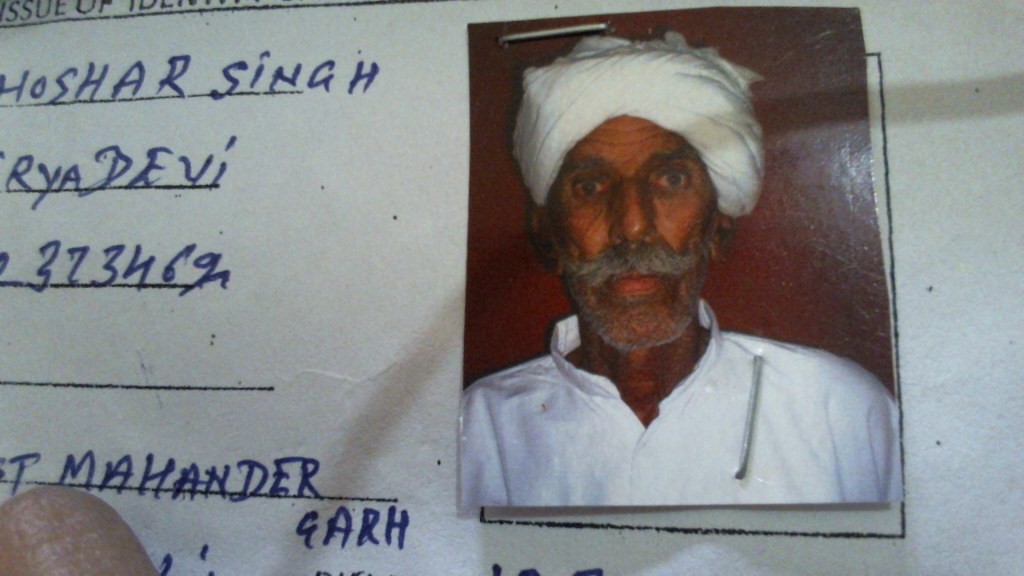 ISSUE OF IDENTITY
HOSHAR SINGH
RYADEVI
373469
ST MAHANDER
GARH